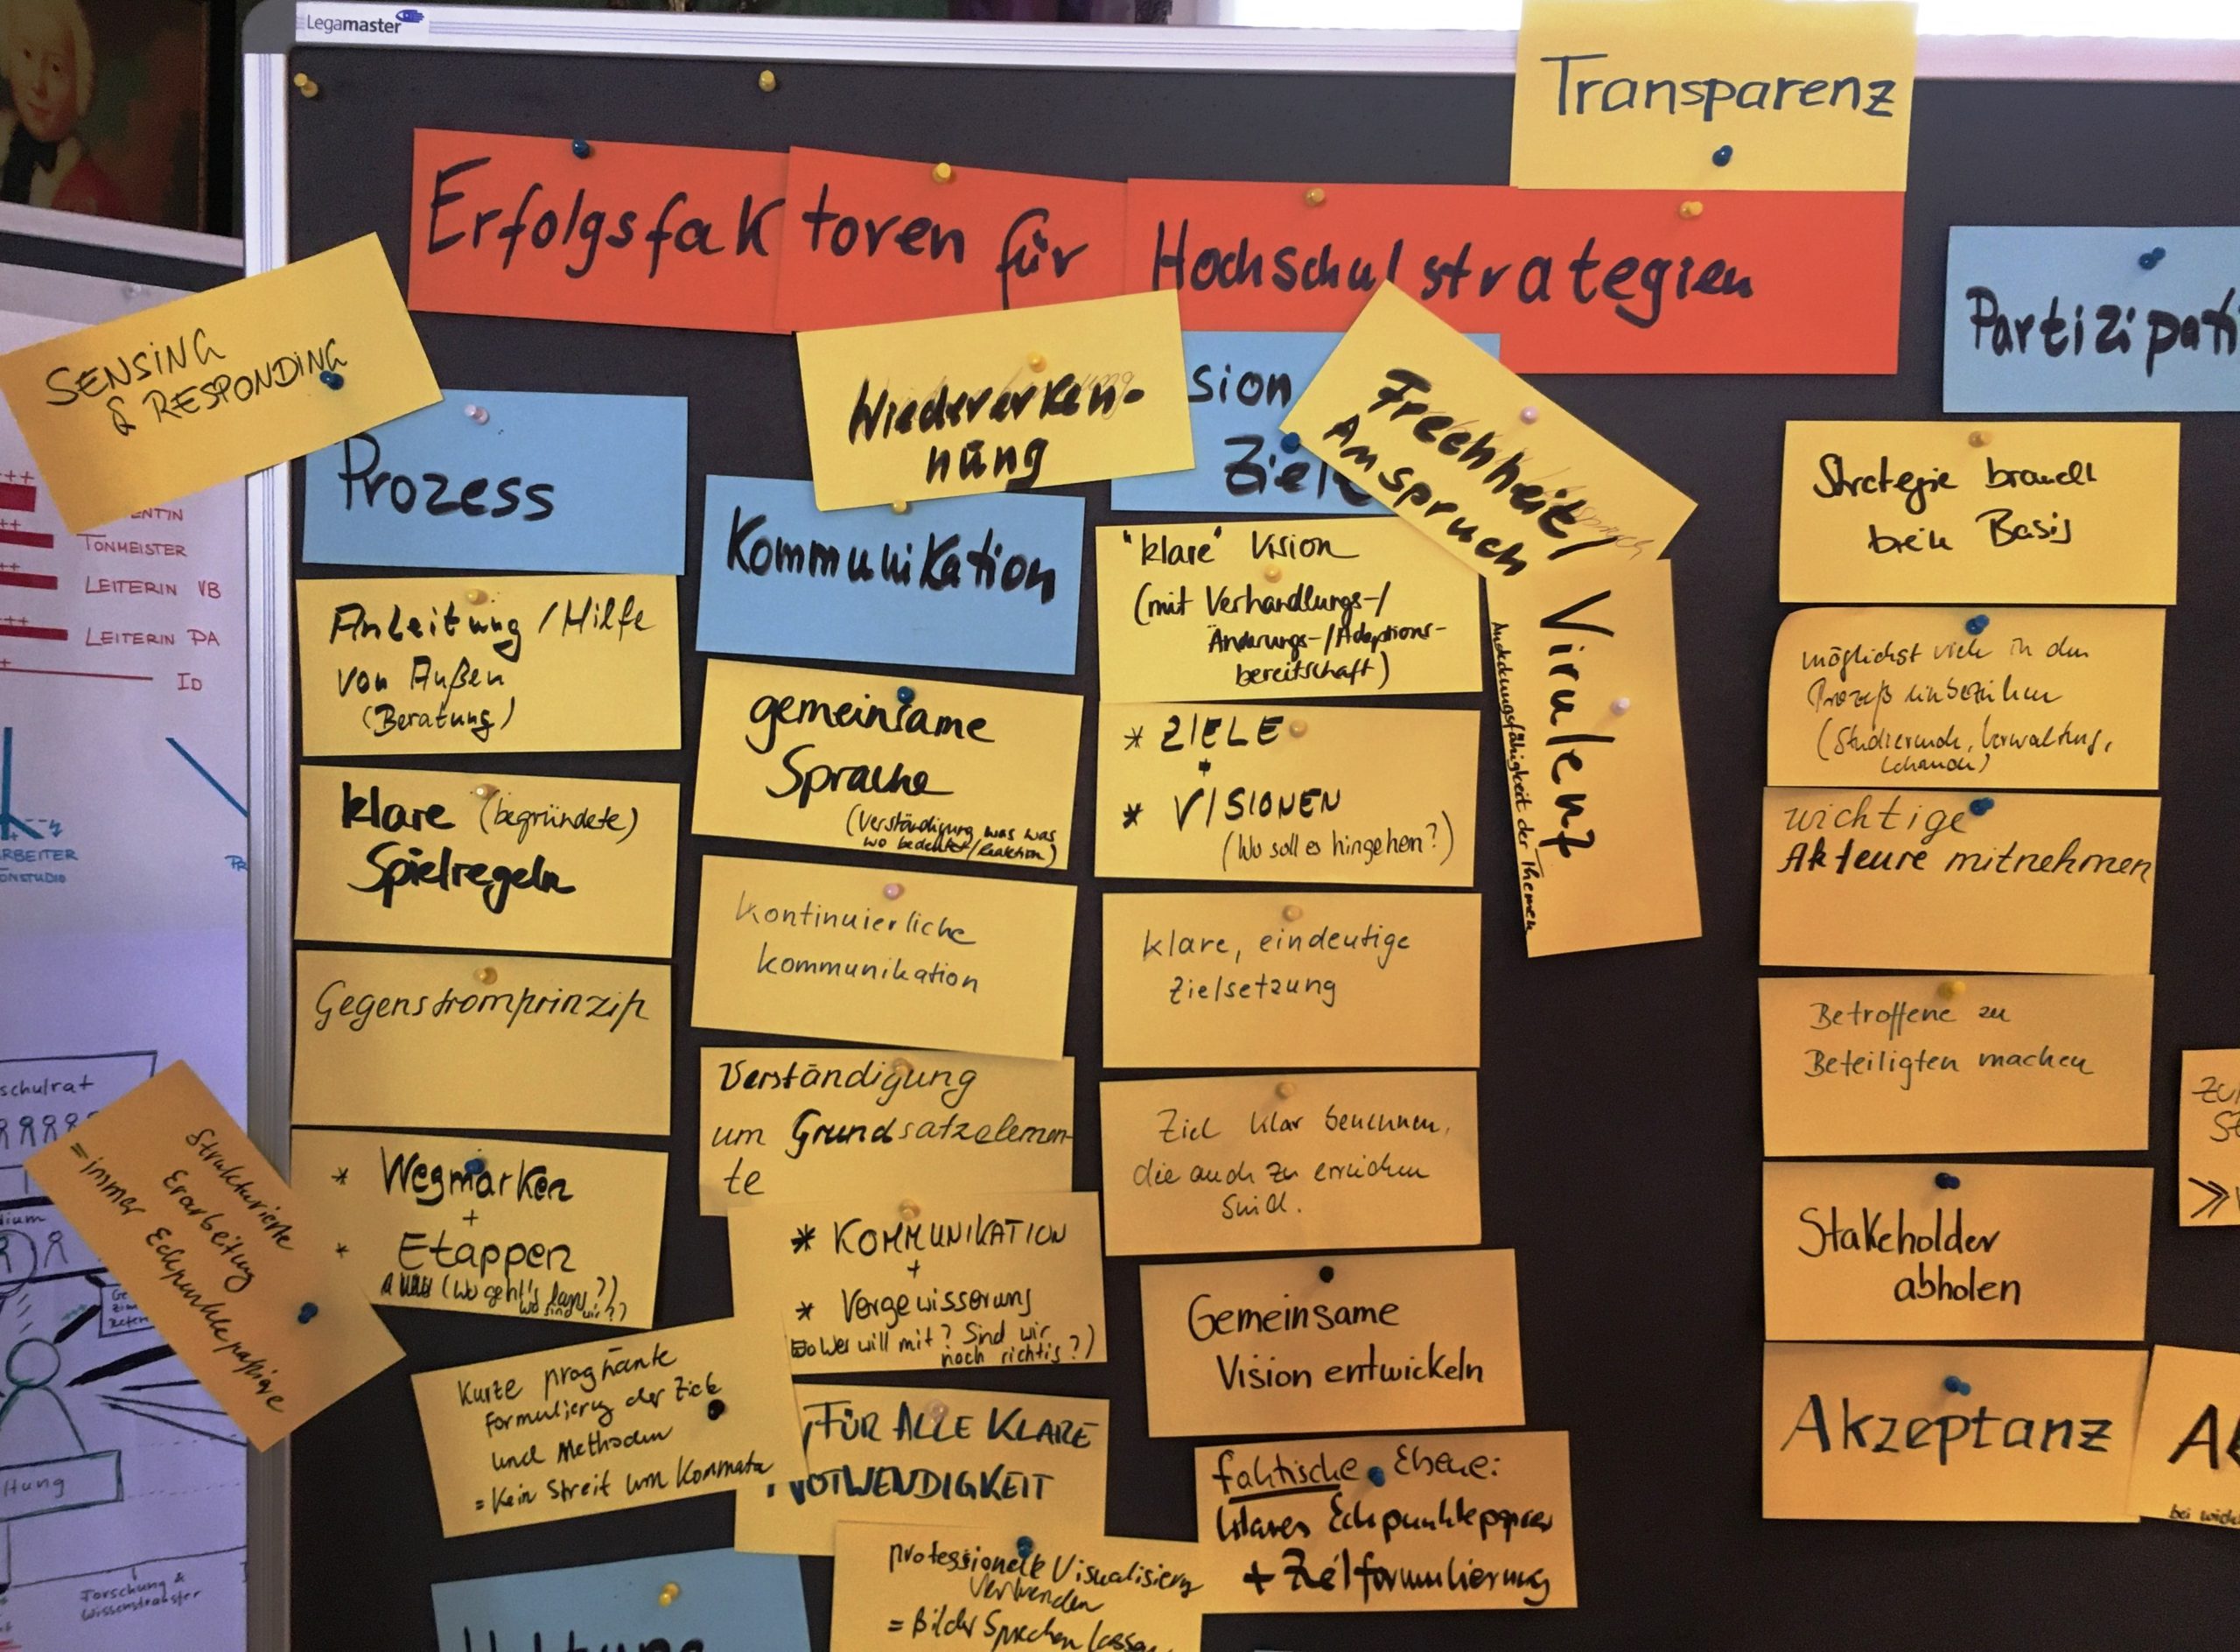 Legamaster
Transparenz
Erfolgsfaktoren für Hochschulstrategien
SENSING
& RESPONDING
Prozess
Anleitung / Hilfe
von Außen
(Beratung)
klare (begründete)
Spielregeln
Gegenstromprinzip
* Wegmarken
+
* Etappen
(Wo geht's lang?)
wo sind wir?)
Strukturierte
Erarbeitung
= immer Eckpunktepapiere
Kurze prägnante
Formulierung der Ziele
und Methoden
= Kein Streit um Kommata
Wiedererken-
nung
Kommunikation
gemeinsame
Sprache
(Verständigung was was
wo bedeutet/Reaktion)
Kontinuierliche
Kommunikation
Verständigung
um Grundsatzelemen-
te
* KOMMUNIKATION
+
* Vergewisserung
Wer will mit? Sind wir
noch richtig?)
FÜR ALLE KLARE
NOTWENDIGKEIT
professionelle Visualisierg
verwenden
= Bilder sprechen lassen
sion
Ziele
Frechheit/
Anspruch
"klare" Vision
(mit Verhandlungs-/
Änderungs-/Adaptions-
bereitschaft)
* ZIELE
+
* VISIONEN
(Wo soll es hingehen?)
klare, eindeutige
Zielsetzung
Ziel klar benennen,
die auch zu erreichen
sind.
Gemeinsame
Vision entwickeln
faktische Ebene:
klares Eckpunktepapier
+ Zielformulierung
Virulenz
Andockungsfähigkeit der Themen
Partizipati
Strategie braucht
breite Basis
möglichst viele in den
Prozeß einbeziehen
(Studierende, Verwaltung,
Lehrende)
wichtige
Akteure mitnehmen
Betroffene zu
Beteiligten machen
Stakeholder
abholen
Akzeptanz
TONMEISTER
LEITERIN VB
LEITERIN PA
ID
schulrat
Forschung &
Wissenstransfer